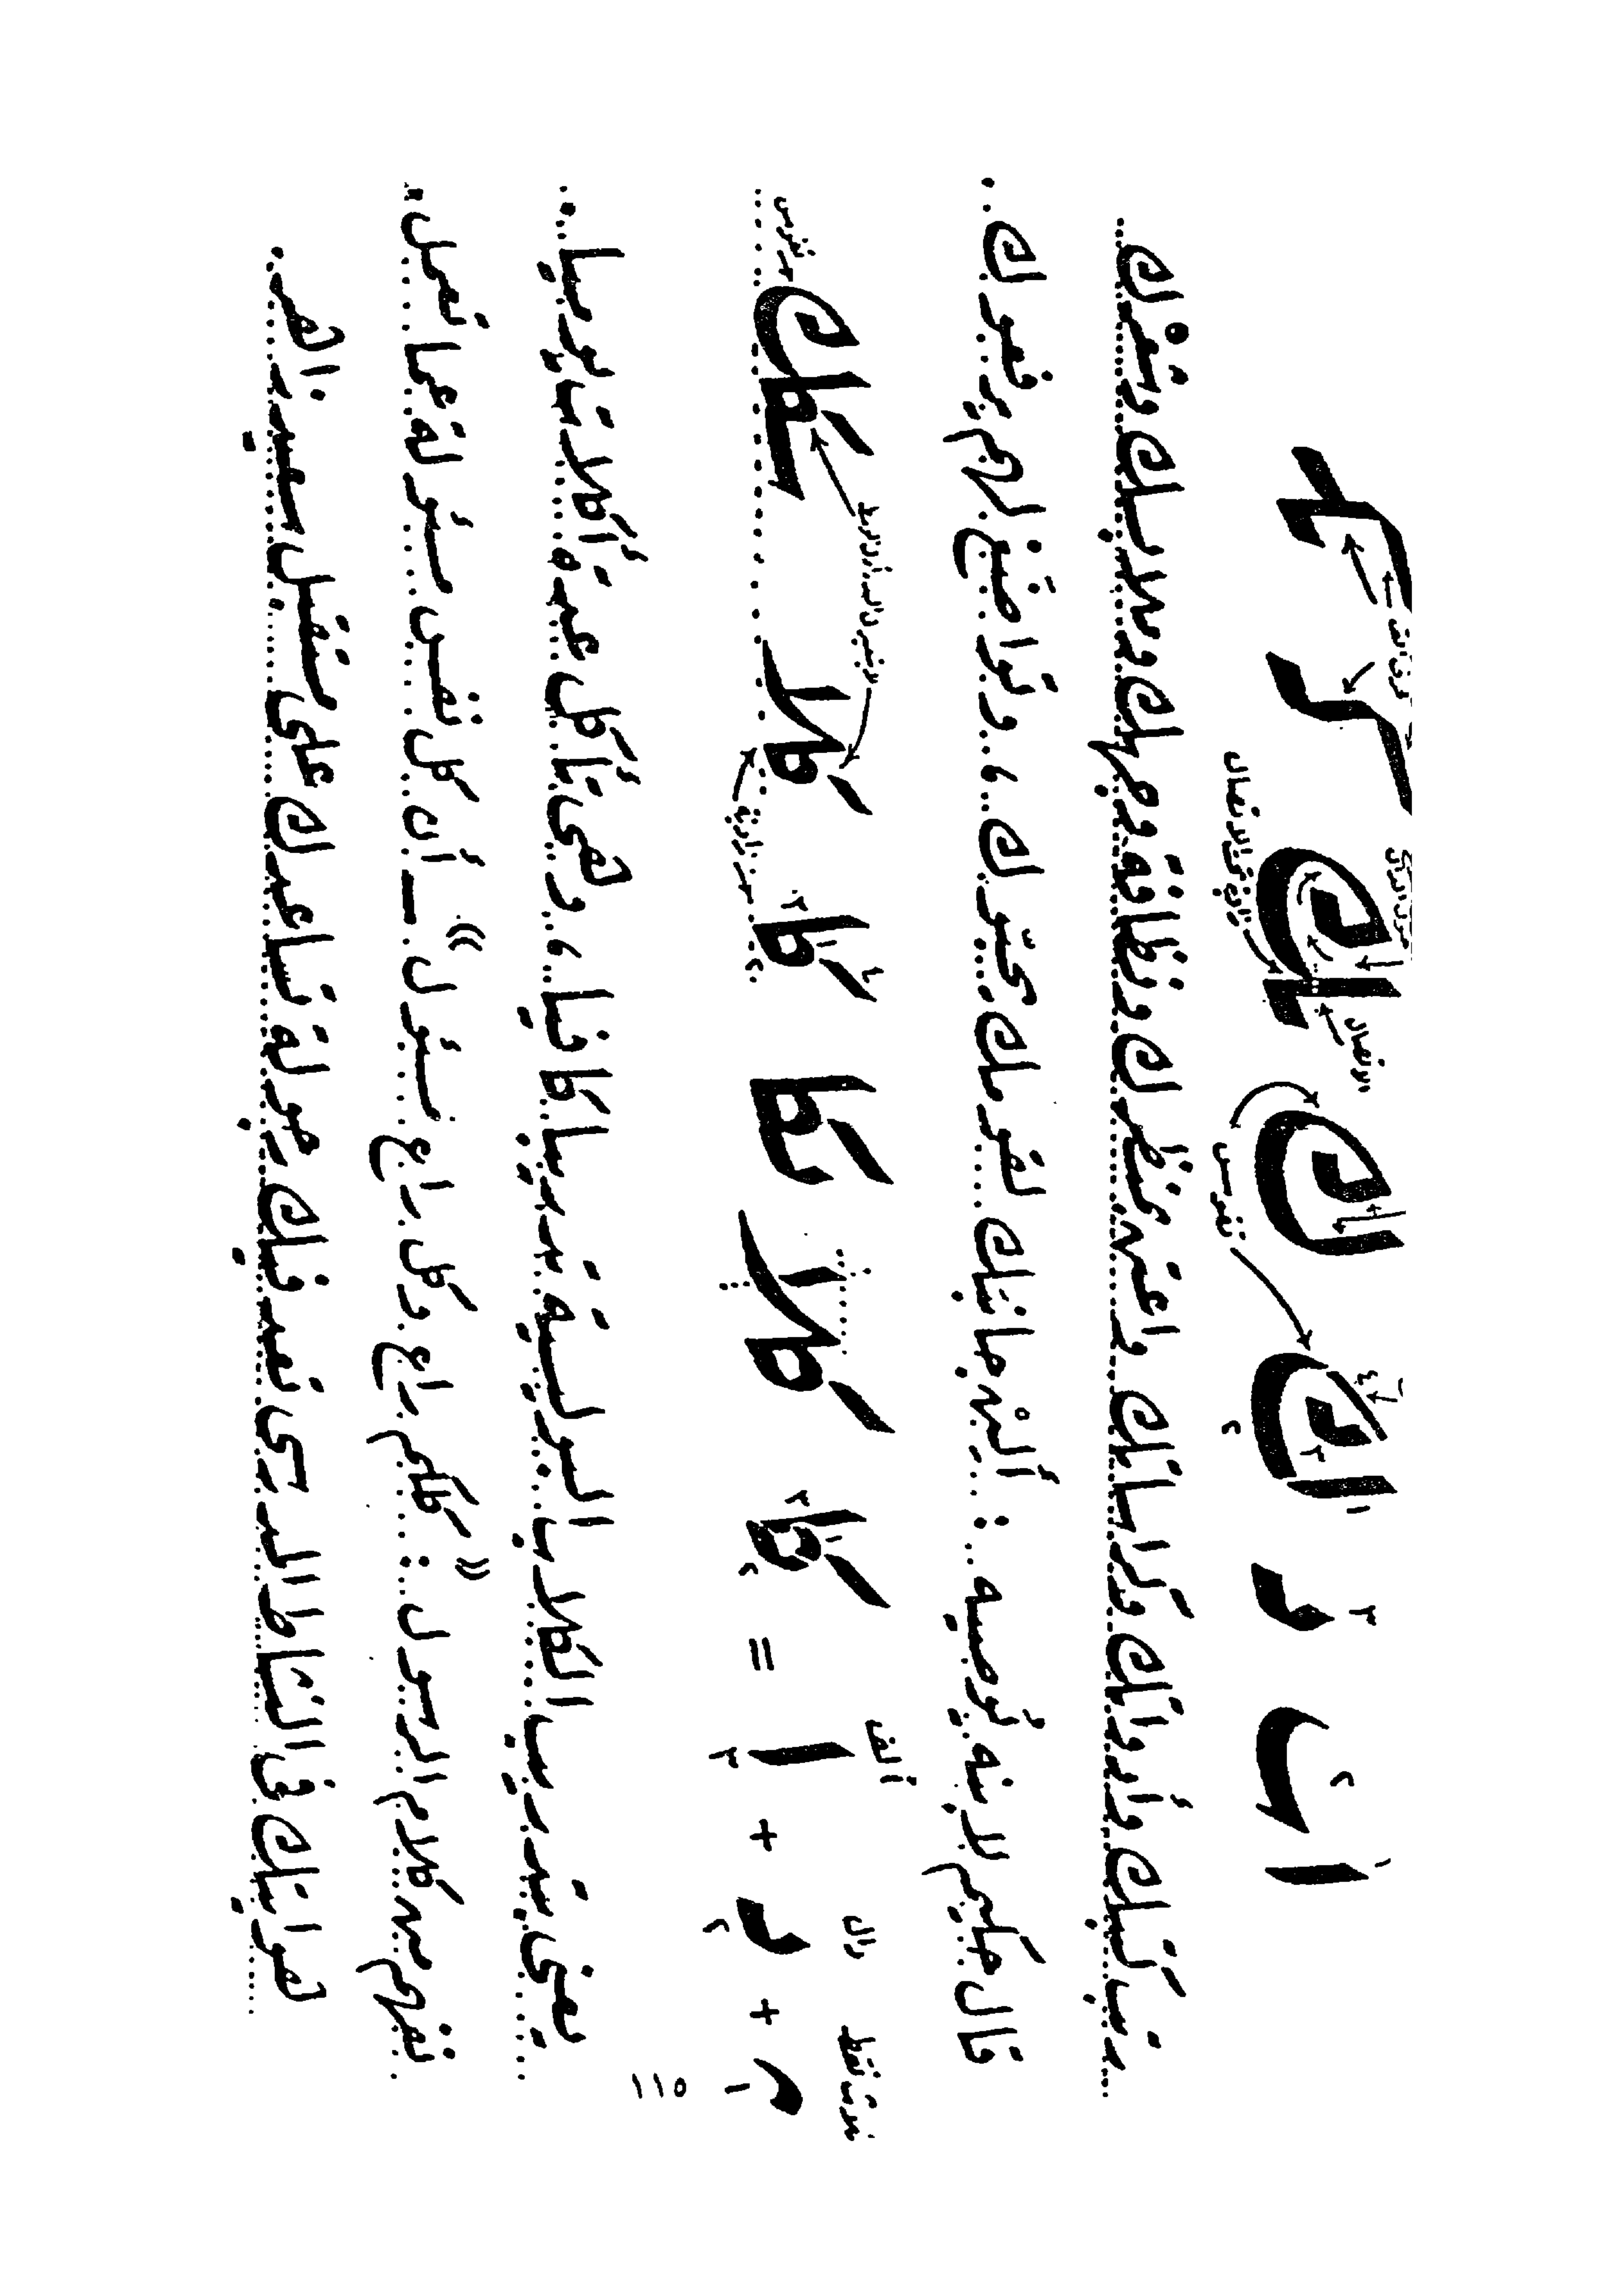 ا ں د اك اك اك
تقوس
الاتصال
رتب كتبك وأدواتك وكراساتك .. واعتن بمنظرك ونظافة وجهك وملابسك وشعرك ..
قال حكيم لابنه يوصيه : ألِنْ جانبك لقومك يحبّوك ، وتواضع لهم يرفعوك ..
دال ألف
+ د + ا = كا كلا كا كا كلا
تقوس
١١٥
يعنى بتدريب الكلاب البوليسية تدريبا كافيا ، وهى تأكل عدة أكلات يوميا ..
نفهم من كلام الرسول : « كلكم راع وكل راع مسئول » ــ أن كل نفس مسئولة عما تعمل ..
هواياتك فى النشاط المدرسى تعد فيك رجولة تساعدك على مستقبل سعيد زاهر .